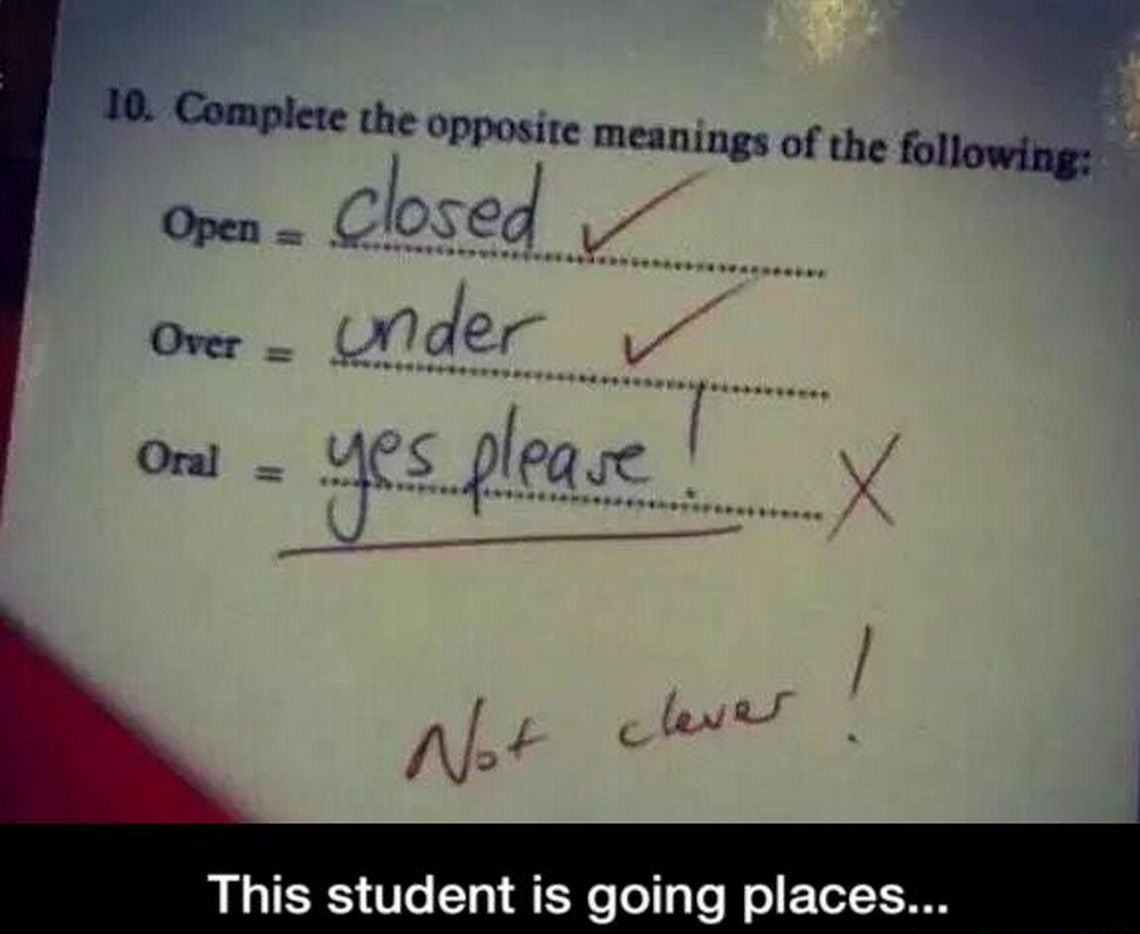 10. Complete the opposite meanings of the following:
Open = closed
Over = under
Oral = yes please!
Not clever!
This student is going places...